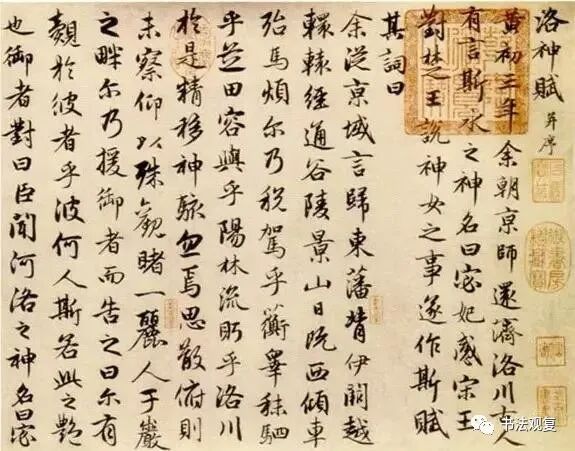 洛神賦 并序
黄初三年余朝京師還濟洛川古人
有言斯水之神名曰宓妃感宋玉
對楚王説神女之事遂作斯賦
其詞曰
余從京域言歸東藩背伊闕越
轘轅經通谷陵景山日既西傾車
殆馬煩尔乃税駕乎蘅皋秣駟
乎芝田容與乎陽林流眄乎洛川
於是精移神駭忽焉思散俯則
未察仰以殊觀睹一麗人于巖
之畔尔乃援御者而告之曰尔有
覿於彼者乎彼何人斯若此之艷
也御者對曰臣聞河洛之神名曰宓
书法观复